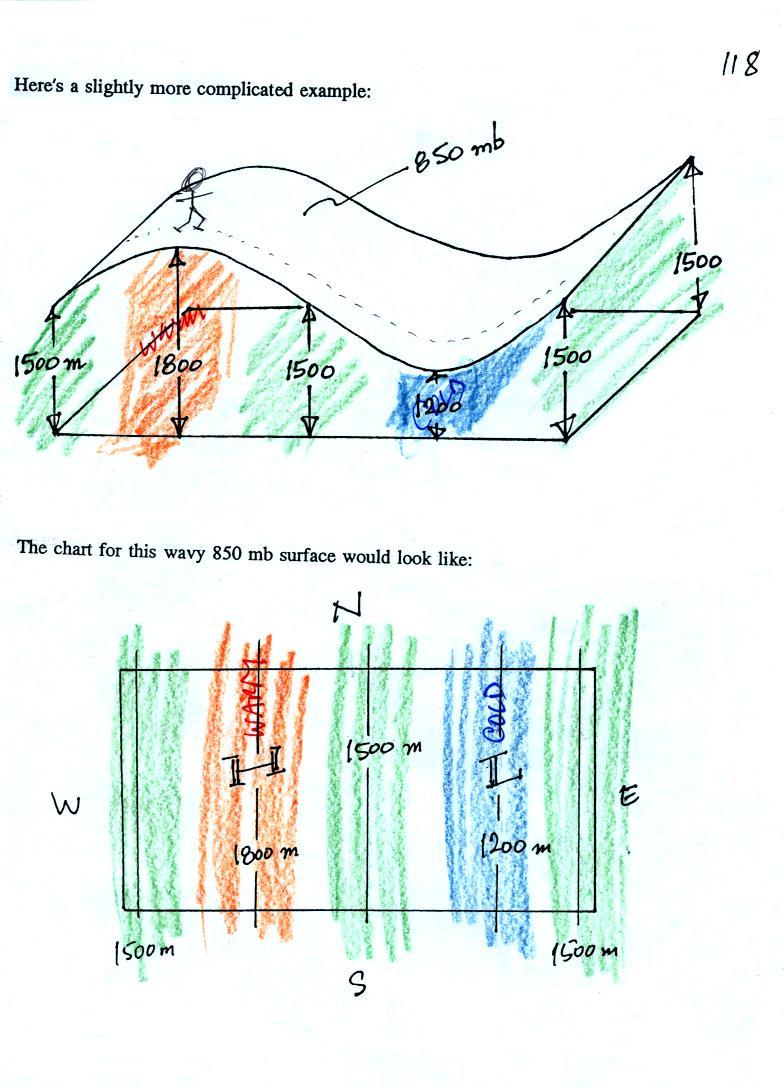 118
Here's a slightly more complicated example:
850 mb
1500
1500 m
warm
1800
1500
COLD
1200
1500
The chart for this wavy 850 mb surface would look like:
N
WARM
COLD
1500 m
H
L
W
E
1800 m
1200 m
1500 m
1500 m
S